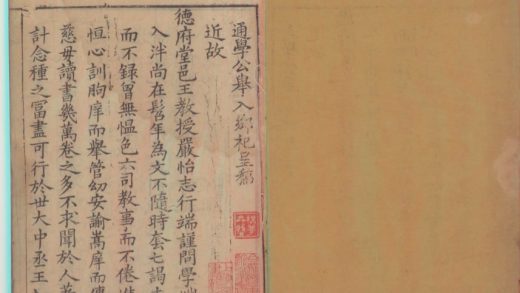 通學公舉入鄉祀呈稿
近故
德府堂邑王教授嚴怡志行端謹問學
入泮尚在髫年為文不隨時套七謁
而不録曾無慍色六司教事而不倦
恒心訓朐庠而舉管幼安諭嵩庠而傳
慈毋讀書幾萬卷之多不求聞於人
計念種之冨盡可行於世大中丞王